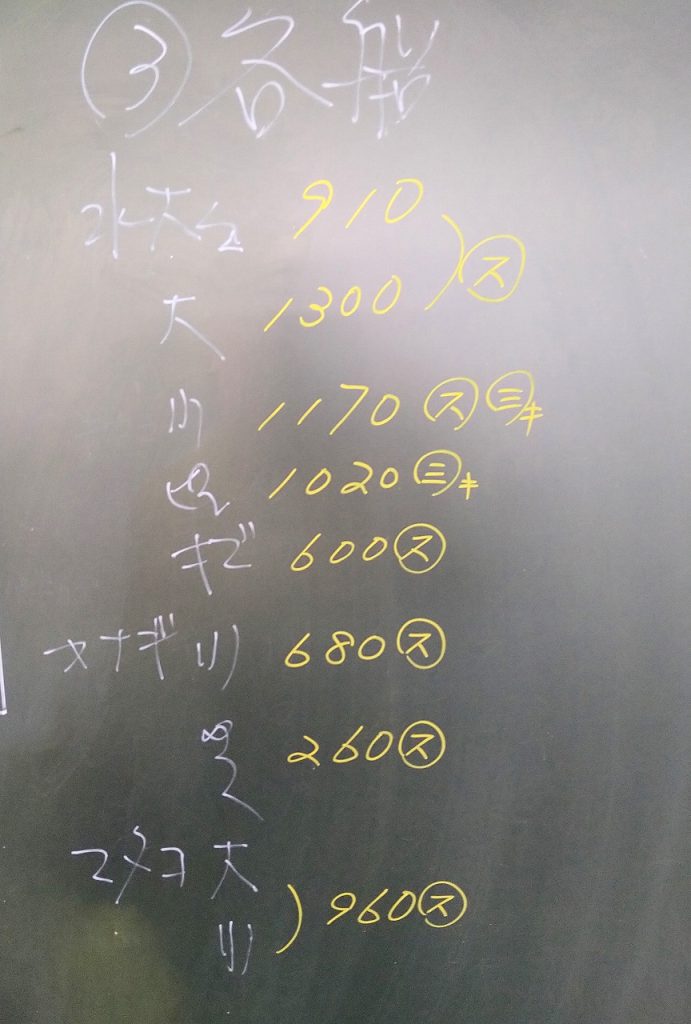 ③各船
910
大 1300 ㋜
小 1170 ㋜ ㋯キ
1020 ㋯キ
ギ 600 ㋜
オナギ 小 680 ㋜
260 ㋜
マメヨ 大
小 960 ㋜